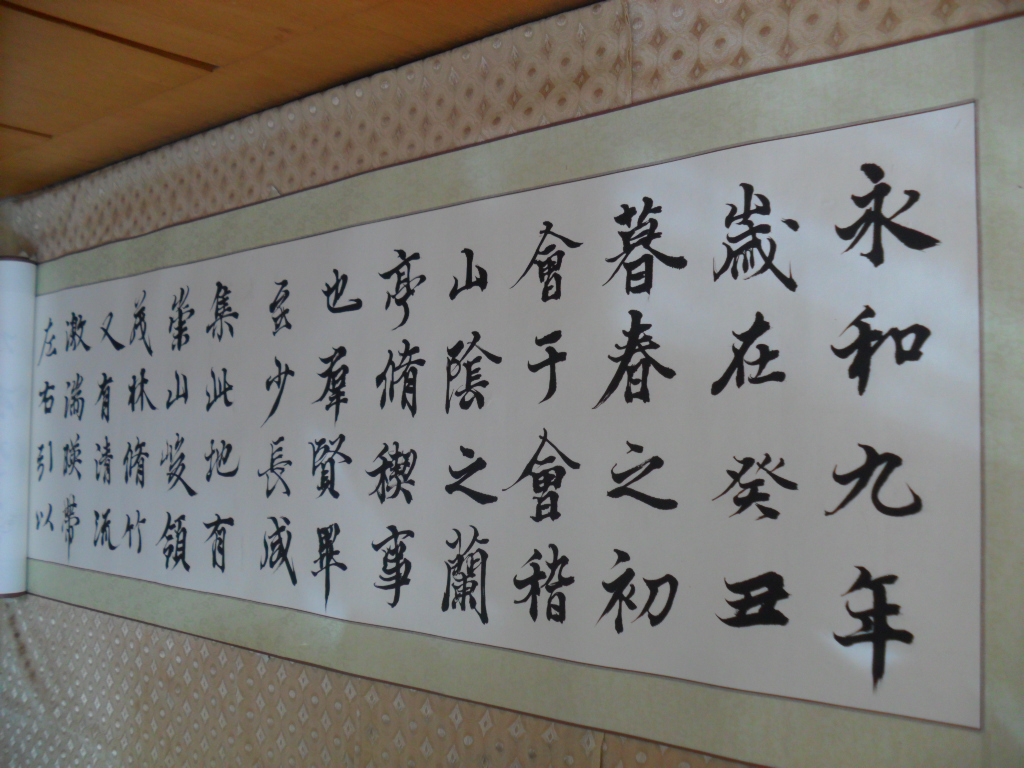 永和九年
歲在癸丑
暮春之初
會于會稽
山陰之蘭
亭脩禊事
也羣賢畢
至少長咸
集此地有
崇山峻領
茂林脩竹
又有清流
激湍暎帶
左右引以